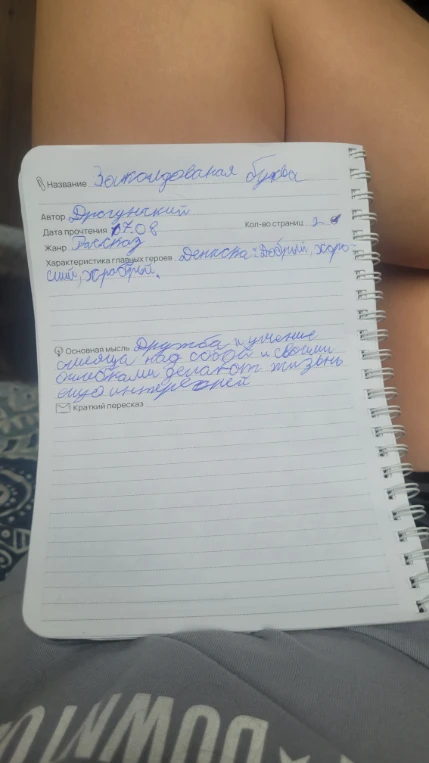 Название Заколдованая буква
Автор Драгунский
Дата прочтения 17.08 Кол-во страниц 2
Жанр Рассказ
Характеристика главных героев Дениска: Добрый, хоро-
ший, храбрый.
Основная мысль Дружба и умение
смеяца над собой и своими
ошибками делают жизнь
ещё интересней
Краткий пересказ
DOWNTO